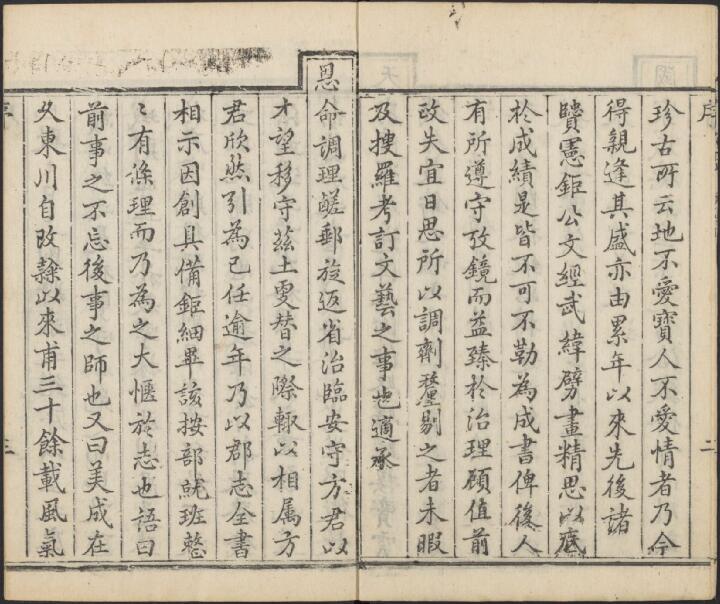 序
二
珍古所云地不愛寳人不愛情者乃今
得親逢其盛亦由累年以來先後諸
賢憲鉅公文經武緯劈畫精思以底
於成績是皆不可不勒為成書俾後人
有所遵守攷鏡而益臻於治理顧值前
政失宜日思所以調劑釐剔之者未暇
及搜羅考訂文藝之事也適承
恩命調理鹾郵旋返省治臨安守方君以
才望移守茲土受替之際輙以相属方
君欣然引為己任逾年乃以郡志全書
相示因創具備鉅細畢該按部就班整
〻有條理而乃為之大愜於志也語曰
前事之不忘後事之師也又曰美成在
久東川自改隸以來甫三十餘載風氣
序
三